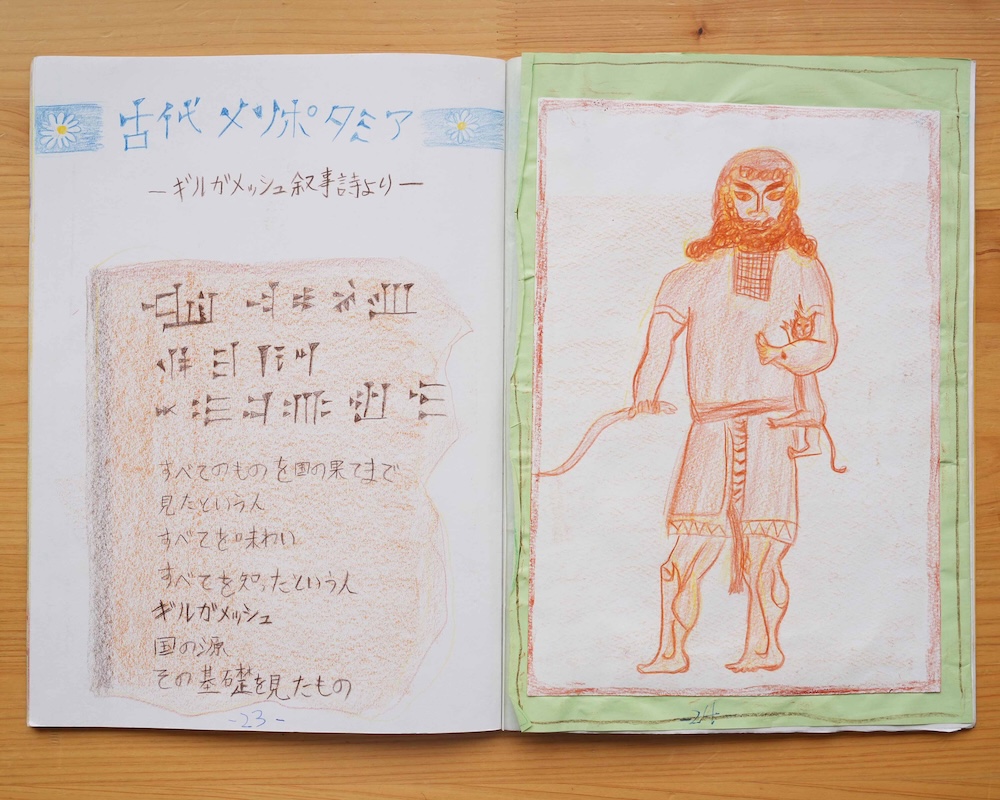 古代メソポタミア
－ギルガメッシュ叙事詩より－
すべてのものを国の果てまで
見たという人
すべてを味わい
すべてを知ったという人
ギルガメッシュ
国の源
その基礎を見たもの
-23-
-24-